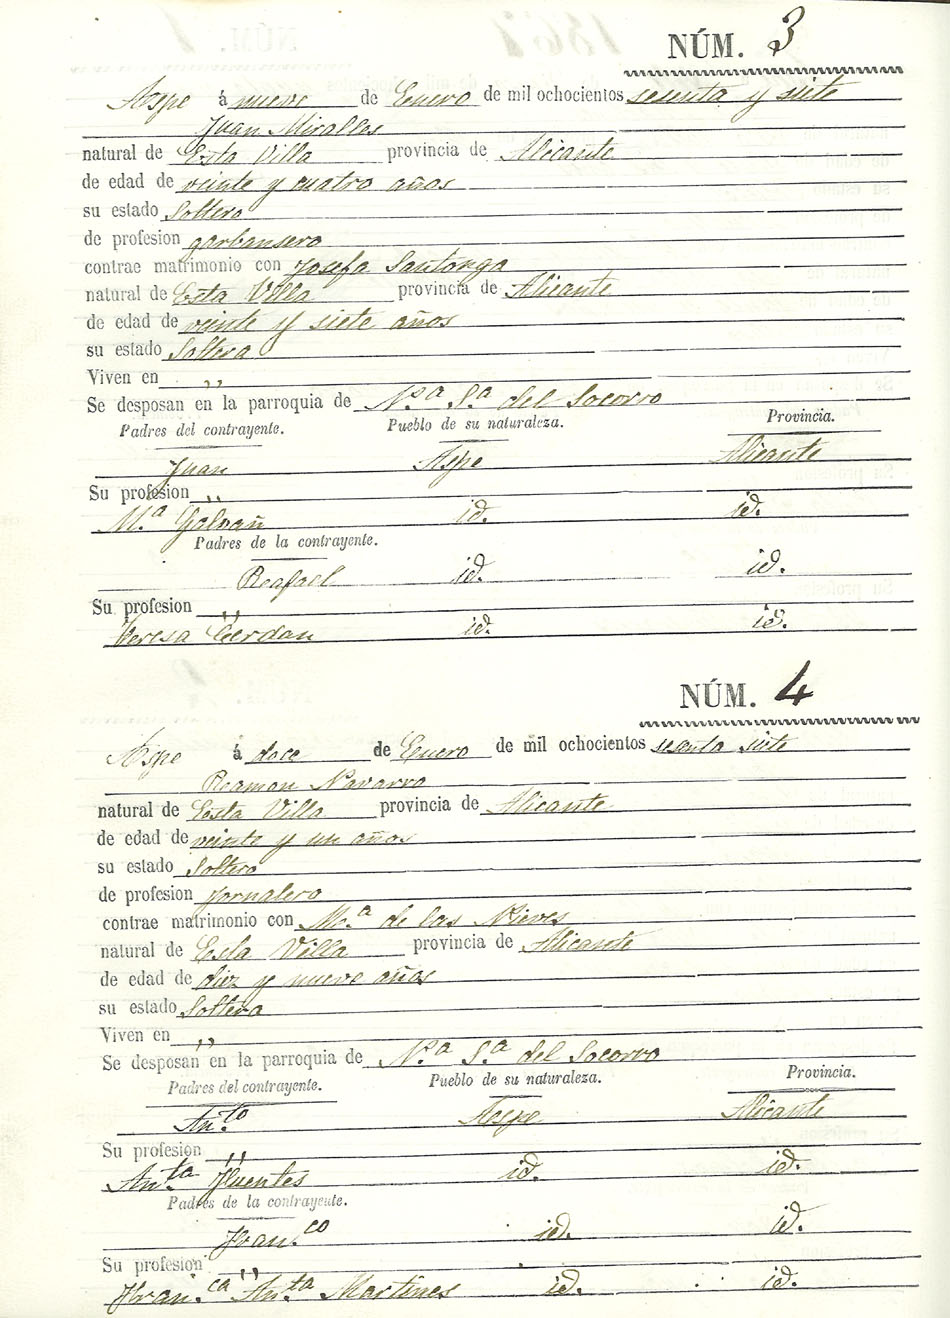 NÚM. 3
Aspe á nueve de Enero de mil ochocientos sesenta y siete
Juan Miralles
natural de Esta Villa provincia de Alicante
de edad de veinte y cuatro años
su estado Soltero
de profesion garbansero
contrae matrimonio con Josefa Santonga
natural de Esta Villa provincia de Alicante
de edad de veinte y siete años
su estado Soltera
Viven en ,,
Se desposan en la parroquia de N.ª S.ª del Socorro
Padres del contrayente. Pueblo de su naturaleza. Provincia.
Juan Aspe Alicante
Su profesion ,,
M.ª Galvañ id. id.
Padres de la contrayente.
Reafael id. id.
Su profesion ,,
Teresa Cerdan id. id.
NÚM. 4
Aspe á doce de Enero de mil ochocientos sesenta siete
Reamon Navarro
natural de Esta Villa provincia de Alicante
de edad de veinte y un años
su estado Soltero
de profesion Jornalero
contrae matrimonio con M.ª de las Nieves
natural de Esta Villa provincia de Alicante
de edad de diez y nueve años
su estado Soltera
Viven en ,,
Se desposan en la parroquia de N.ª S.ª del Socorro
Padres del contrayente. Pueblo de su naturaleza. Provincia.
An.to Aspe Alicante
Su profesion ,,
An.ta Fuentes id. id.
Padres de la contrayente.
Fran.co id. id.
Su profesion ,,
Fran.ca An.ta Martines id. id.